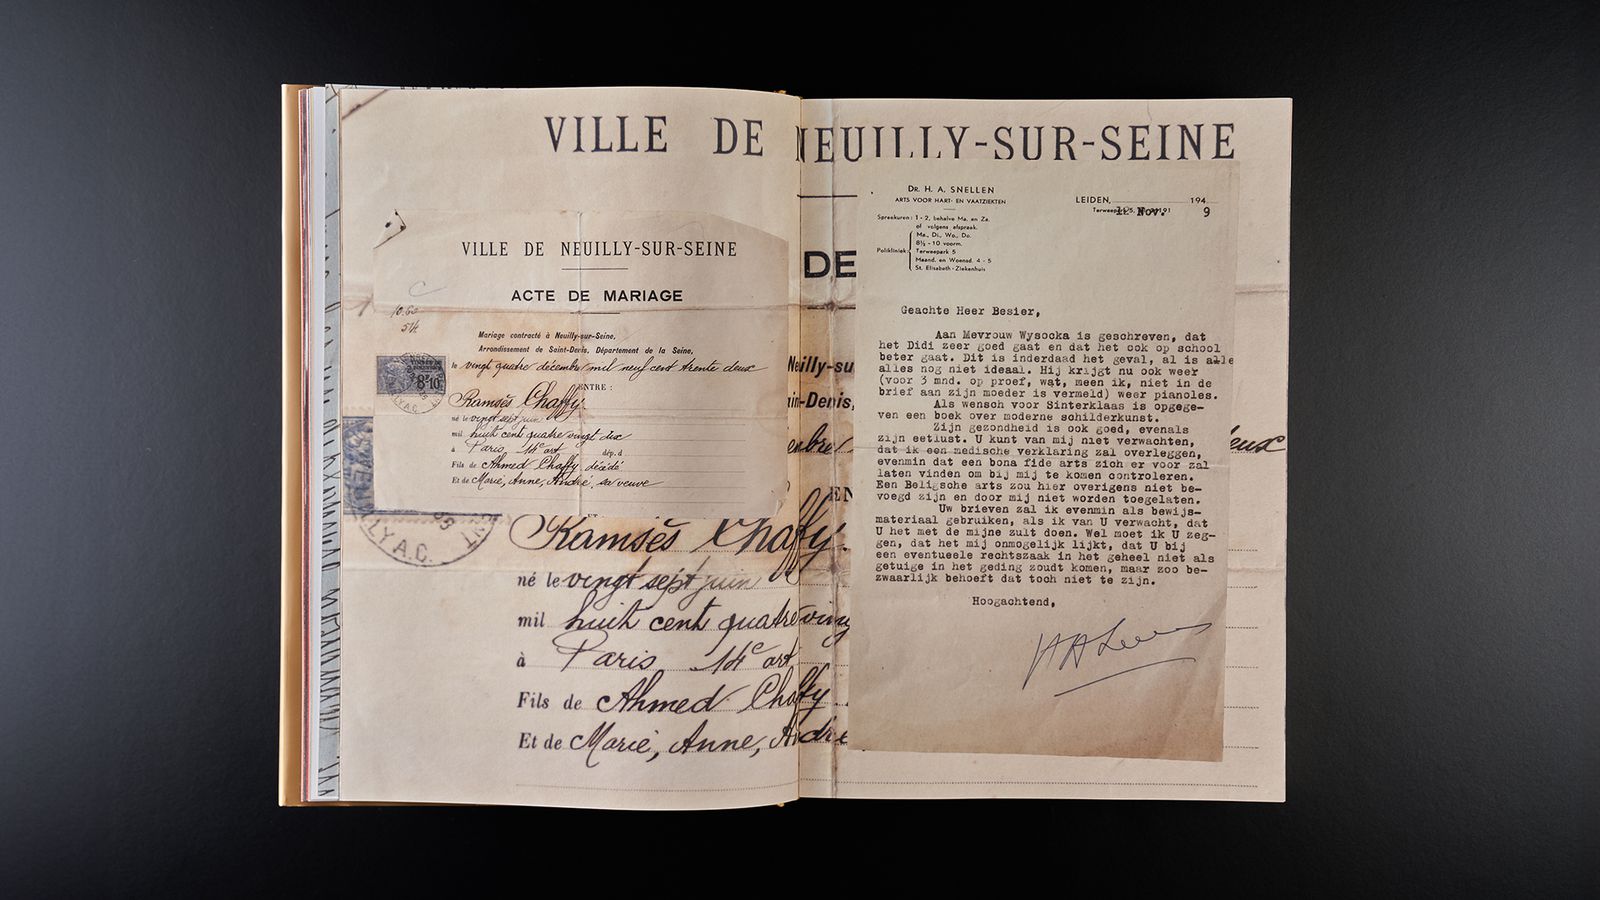 VILLE DE NEUILLY-SUR-SEINE
VILLE DE NEUILLY-SUR-SEINE
ACTE DE MARIAGE
10.60
54
Mariage contracté à Neuilly-sur-Seine,
Arrondissement de Saint-Denis, Département de la Seine,
le vingt quatre décembre mil neuf cent trente deux
8F10
ENTRE :
Ramsès Chaffy
né le vingt sept juin
mil huit cent quatre vingt dix
à Paris 14e art dép. d
Fils de Ahmed Chaffy décédé
Et de Marie, Anne, André, sa veuve
ET
LLY A.C.
Ramsès Chaffy.
né le vingt sept juin
mil huit cent quatre ving
à Paris 14e art
Fils de Ahmed Chaffy
Et de Marie, Anne, André
DE
Neuilly-su
in-Denis,
embre
EN
eux
DR. H. A. SNELLEN
ARTS VOOR HART- EN VAATZIEKTEN
LEIDEN, 194
Nov. 9
Spreekuren: 1 - 2, behalve Ma. en Za.
of volgens afspraak.
Ma., Di., Wo., Do.
8½ - 10 voorm.
Polikliniek: Terweepark 5
Maand. en Woensd. 4 - 5
St. Elisabeth-Ziekenhuis
Geachte Heer Besier,
Aan Mevrouw Wysocka is geschreven, dat
het Didi zeer goed gaat en dat het ook op school
beter gaat. Dit is inderdaad het geval, al is alle
alles nog niet ideaal. Hij krijgt nu ook weer
(voor 3 mnd. op proef, wat, meen ik, niet in de
brief aan zijn moeder is vermeld) weer pianoles.
Als wensch voor Sinterklaas is opgege-
ven een boek over moderne schilderkunst.
Zijn gezondheid is ook goed, evenals
zijn eetlust. U kunt van mij niet verwachten,
dat ik een medische verklaring zal overleggen,
evenmin dat een bona fide arts zich er voor zal
laten vinden om bij mij te komen controleren.
Een Beligsche arts zou hier overigens niet be-
voegd zijn en door mij niet worden toegelaten.
Uw brieven zal ik evenmin als bewijs-
materiaal gebruiken, als ik van U verwacht, dat
U het met de mijne zult doen. Wel moet ik U zeg-
gen, dat het mij onmogelijk lijkt, dat U bij
een eventueele rechtszaak in het geheel niet als
getuige in het geding zoudt komen, maar zoo be-
zwaarlijk behoeft dat toch niet te zijn.
Hoogachtend,